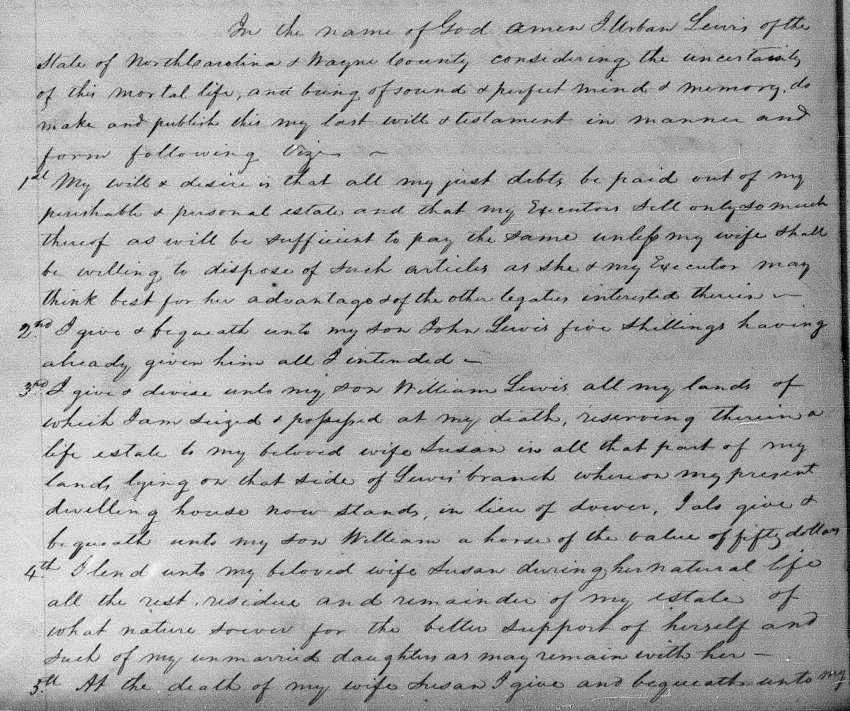 In the name of God amen I. Urban Lewis of the
State of North Carolina & Wayne County considering the uncertainty
of this mortal life, and being of sound & perfect mind & memory, do
make and publish this my last will & testament in manner and
form following Viz
1st My will & desire is that all my just debts be paid out of my
perishable & personal estate and that my Executors sell only so much
thereof as will be sufficient to pay the same unless my wife shall
be willing to dispose of such articles as she & my Executor may
think best for her advantage & of the other legaties interested therein
2nd I give & bequeath unto my son John Lewis five shillings having
already given him all I intended
3rd I give & devise unto my son William Lewis all my lands of
which I am seized & possessed at my death, reserving therein a
life estate to my beloved wife Susan in all that part of my
lands lying on that side of Lewis' branch whereon my present
dwelling house now stands, in lieu of dower, I als give &
bequeath unto my son William a horse of the value of fifty dollars
4th I lend unto my beloved wife Susan during her natural life
all the rest, residue and remainder of my estate of
what nature soever for the better support of herself and
such of my unmarried daughters as may remain with her
5th At the death of my wife Susan I give and bequeath unto my